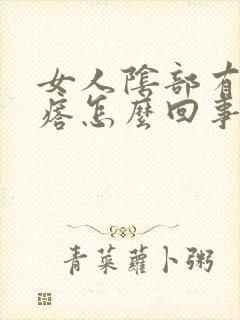 女人陰部有
瘩怎麼回事
青菜蘿卜粥